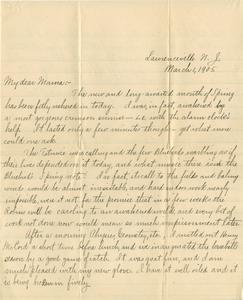 Lawrenceville N. J.
March 1, 1905
My dear Mama:-
The new and long-awaited month of Spring
has been fitly ushered in today. I was, in fact, awakened by
a most gorgeous crimson sunrise - with the alarm clock's
help. It lasted only a few minutes though - yet what more
could one ask.
The Titmice was calling and the few Bluebirds warbling as if
their lives depended on it today, and what music there is in the
Bluebird's Spring note! In fact, it call to the fields and
woods would be almost irresistible and hard indoor work nearly
impossible, were it not for the promise that in a few weeks the
Robins will be caroling to an awakened world, and every bit of
work not done now would mean so much later.
After a morning Physics, Geometry, etc., I
a short time before lunch, and we inaugurated the baseball
season by a good game of catch. It was great fun, and I am
much pleased with my new glove. I have it well oiled and it
is being broken in finely.